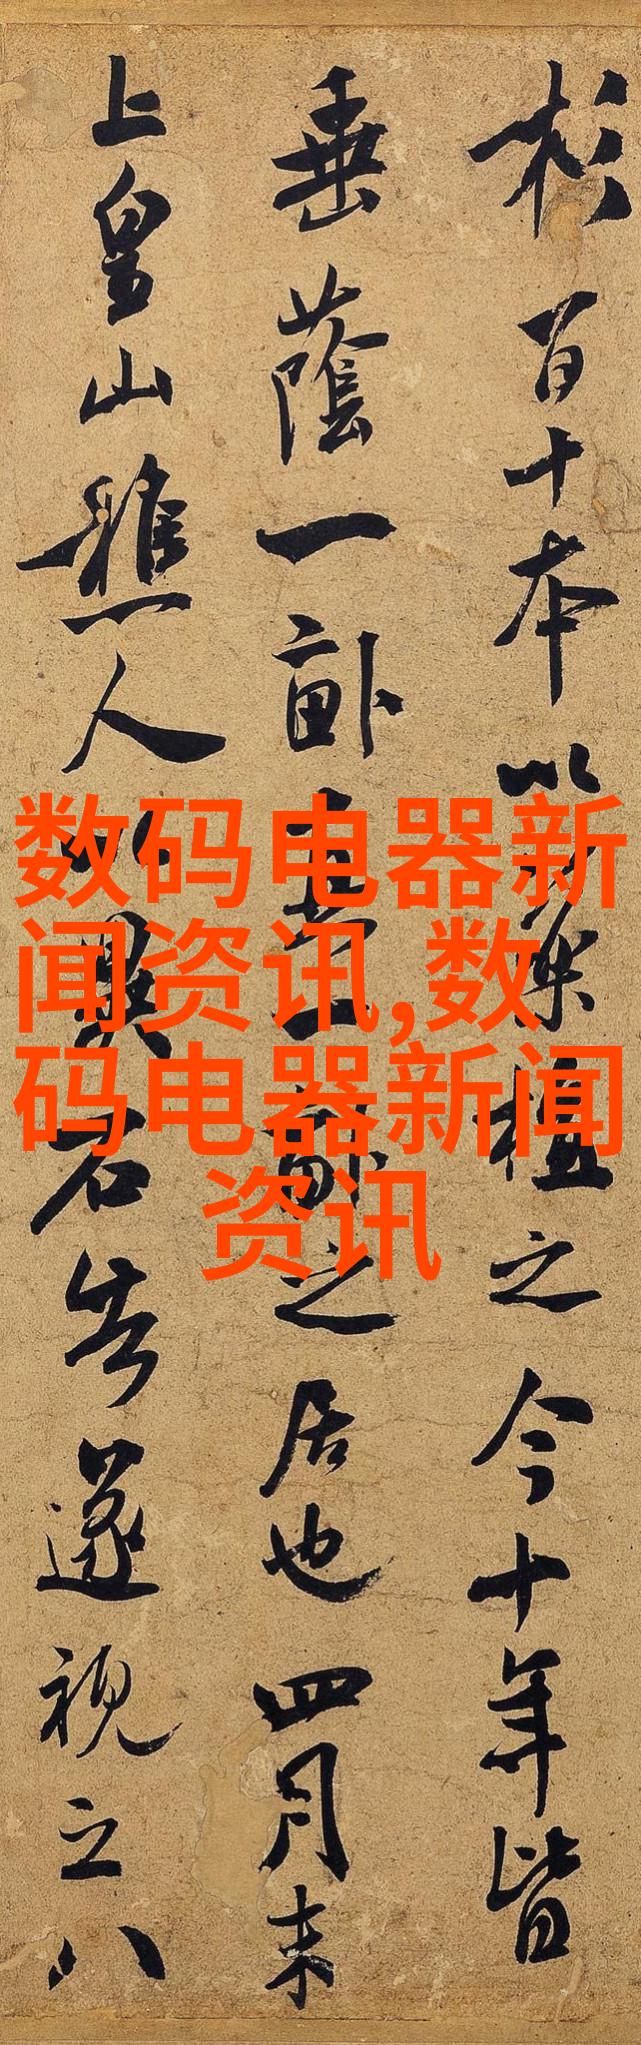 杉百十本以植之今十年皆
垂蔭一畝之居也四月末
上皇山樵人以異石告遂視之八
数码电器新
闻资讯,数
码电器新闻
资讯